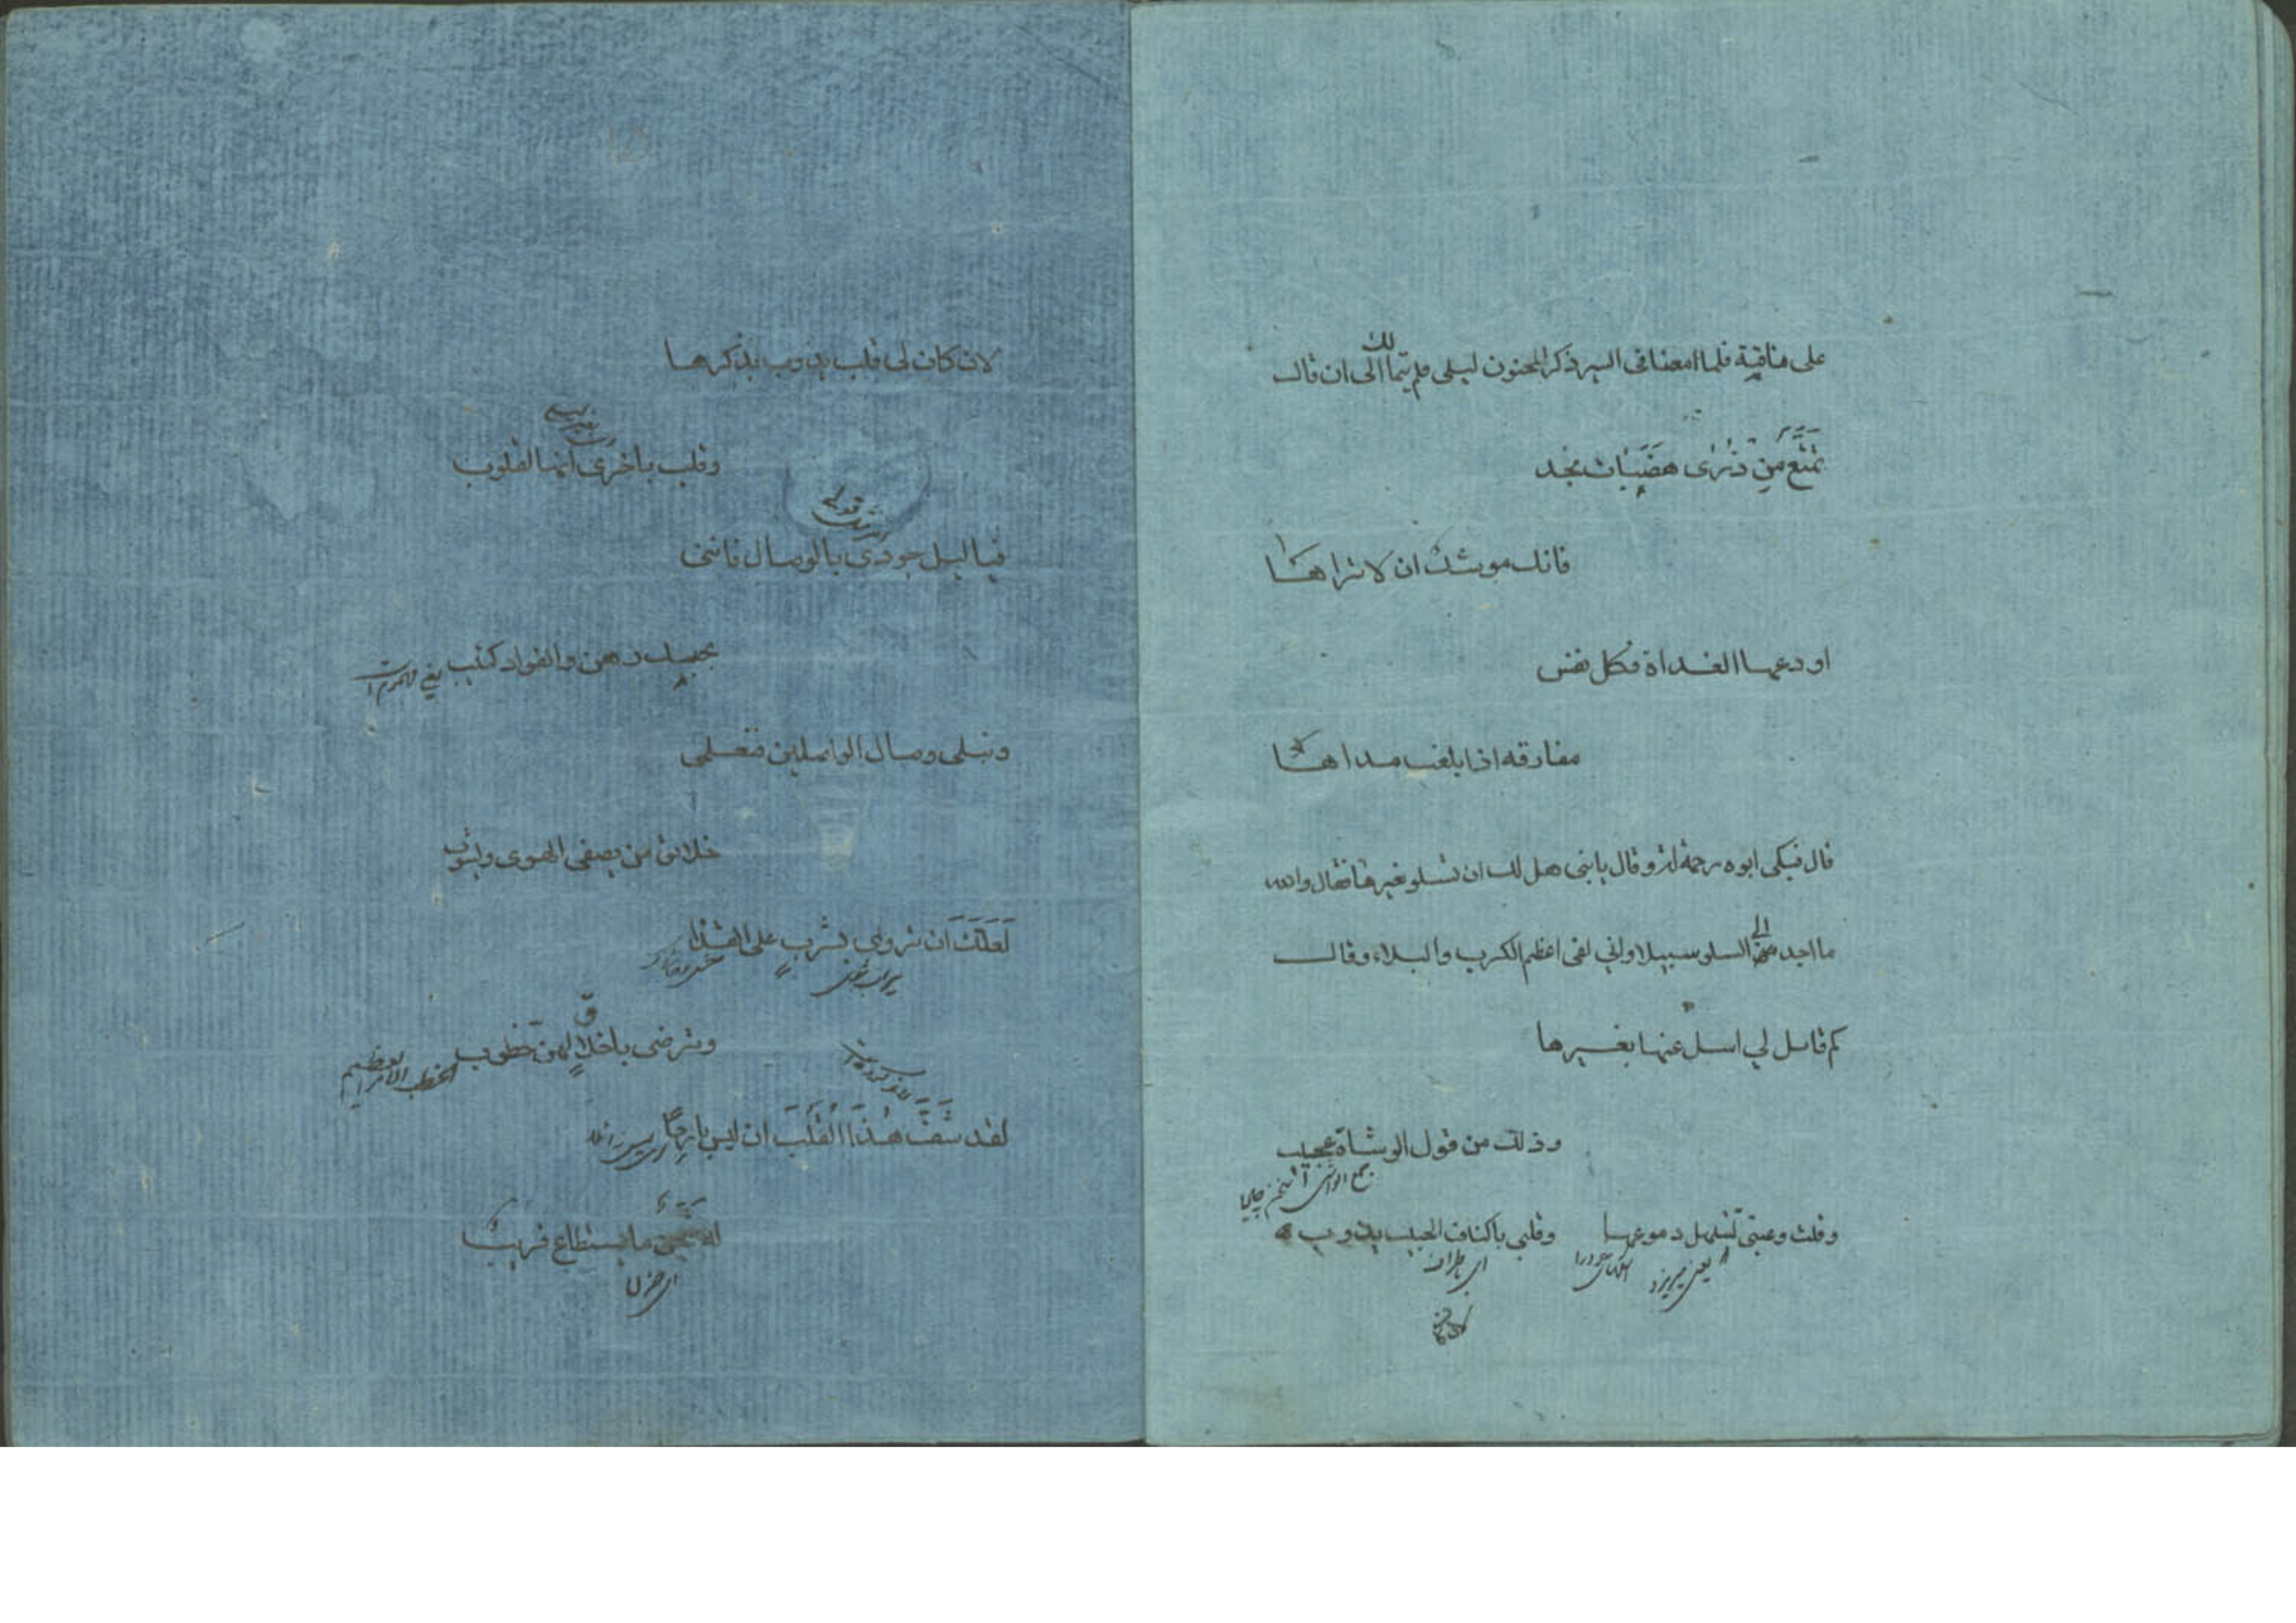 على ناقية فلما امعنا فى السير ذكر المجنون ليلى فلم يتمالك الى ان قال
تمتع من ذرى هضبات نجد
فانك موشك ان لا تراها
اودعها الغداة فكل نفس
مفارقه اذا بلغت مداها
قال فبكى ابوه رحمة له وقال يابنى هل لك ان تسلو بغيرها فقال والله
ما اجد الى السلو سبيلا وانى لفى اعظم الكرب والبلاء وقال
كم قائل لي اسل عنها بغيرها
وذلك من قول الوشاة عجيب
جمع الواشى
وقلت وعينى تستهل دموعها وقلبى باكناف الحبيب يذوب
يعنى ميريزد
لان كان لى قلب يذوب بذكرها
وقلب باخرى انها القلوب
فيا ليل جودى بالوصال فاننى
بحبك رهن والفواد كئيب
وتبلى وصال الواصلين فتعلمى
خلائق من يصفى الهوى ويشوب
لعلك ان تروى بشرب على القذا
وترضى باخلاق لهن خطوب
الخطب الامر العظيم
لقد شف هذا القلب ان ليس بارحا
له شجن ما يستطاع قريب
اى حزن